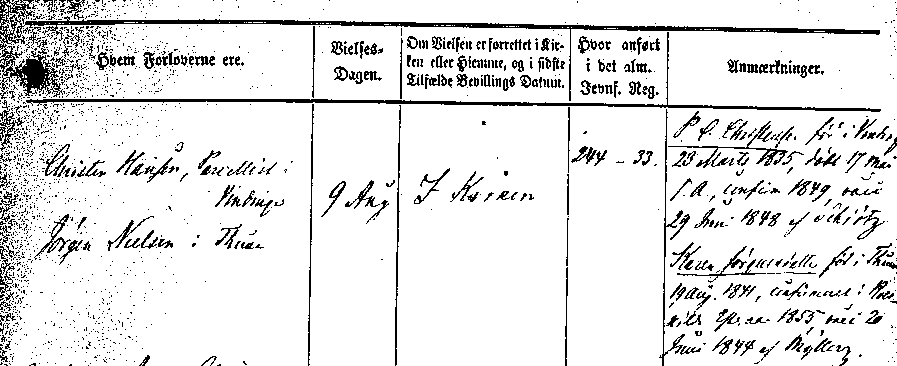 Hvem Forloverne ere.
Vielses-
Dagen.
Om Vielsen er forrettet i Kir-
ken eller Hjemme, og i sidste
Tilfælde Bevillings Datum.
Hvor anført
i det alm.
Jevnf. Reg.
Anmærkninger.
Christen Hansen, Parcellist i
Vindinge
Jørgen Nielsen i Thune
9 Aug
I Kirken
244 - 33.
P C Christens. fød i
23 Marts 1835, døbt 17 Mai
s. A., confirm 1849, vacc
29 Juni 1848 af Schiøtz
Karen Jørgine fød i Thune
19 Aug. 1841, confirmeret i
1855, vacc 20
Juni 1844 af Møller.